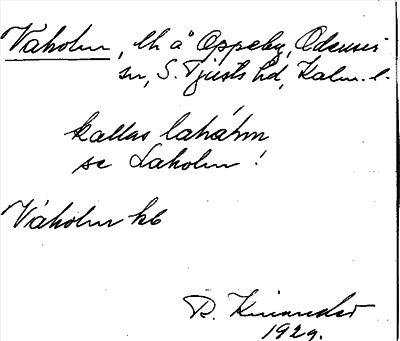 Våholm, lh å Oppeby, Odensvi
sn, S. Tjusts hd, Kalm. l.
kallas lahåhm
se Laholm!
Våholm kb
R. Kinander
1929.